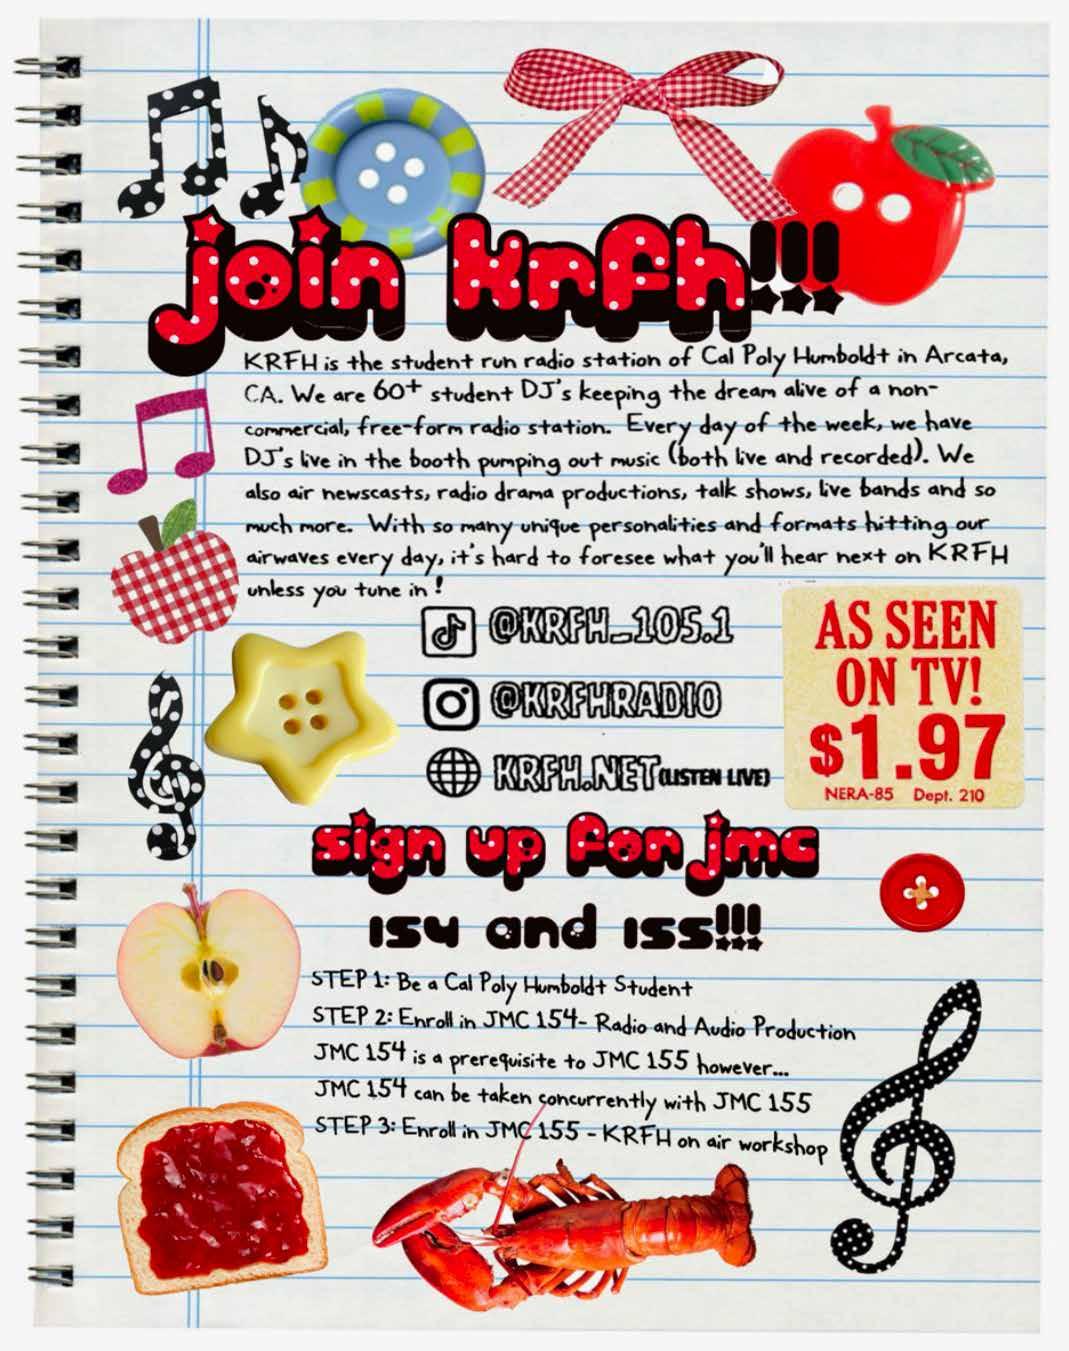 join krfh!!!
KRFH is the student run radio station of Cal Poly Humboldt in Arcata,
CA. We are 60+ student DJ's keeping the dream alive of a non-
commercial, free-form radio station. Every day of the week, we have
DJ's live in the booth pumping out music (both live and recorded). We
also air newscasts, radio drama productions, talk shows, live bands and so
much more. With so many unique personalities and formats hitting our
airwaves every day, it's hard to foresee what you'll hear next on KRFH
unless you tune in!
@KRFH_105.1
@KRFHRADIO
KRFH.NET (LISTEN LIVE)
AS SEEN
ON TV!
$1.97
NERA-85 Dept. 210
sign up for jmc
154 and 155!!!
STEP 1: Be a Cal Poly Humboldt Student
STEP 2: Enroll in JMC 154- Radio and Audio Production
JMC 154 is a prerequisite to JMC 155 however...
JMC 154 can be taken concurrently with JMC 155
STEP 3: Enroll in JMC 155 - KRFH on air workshop